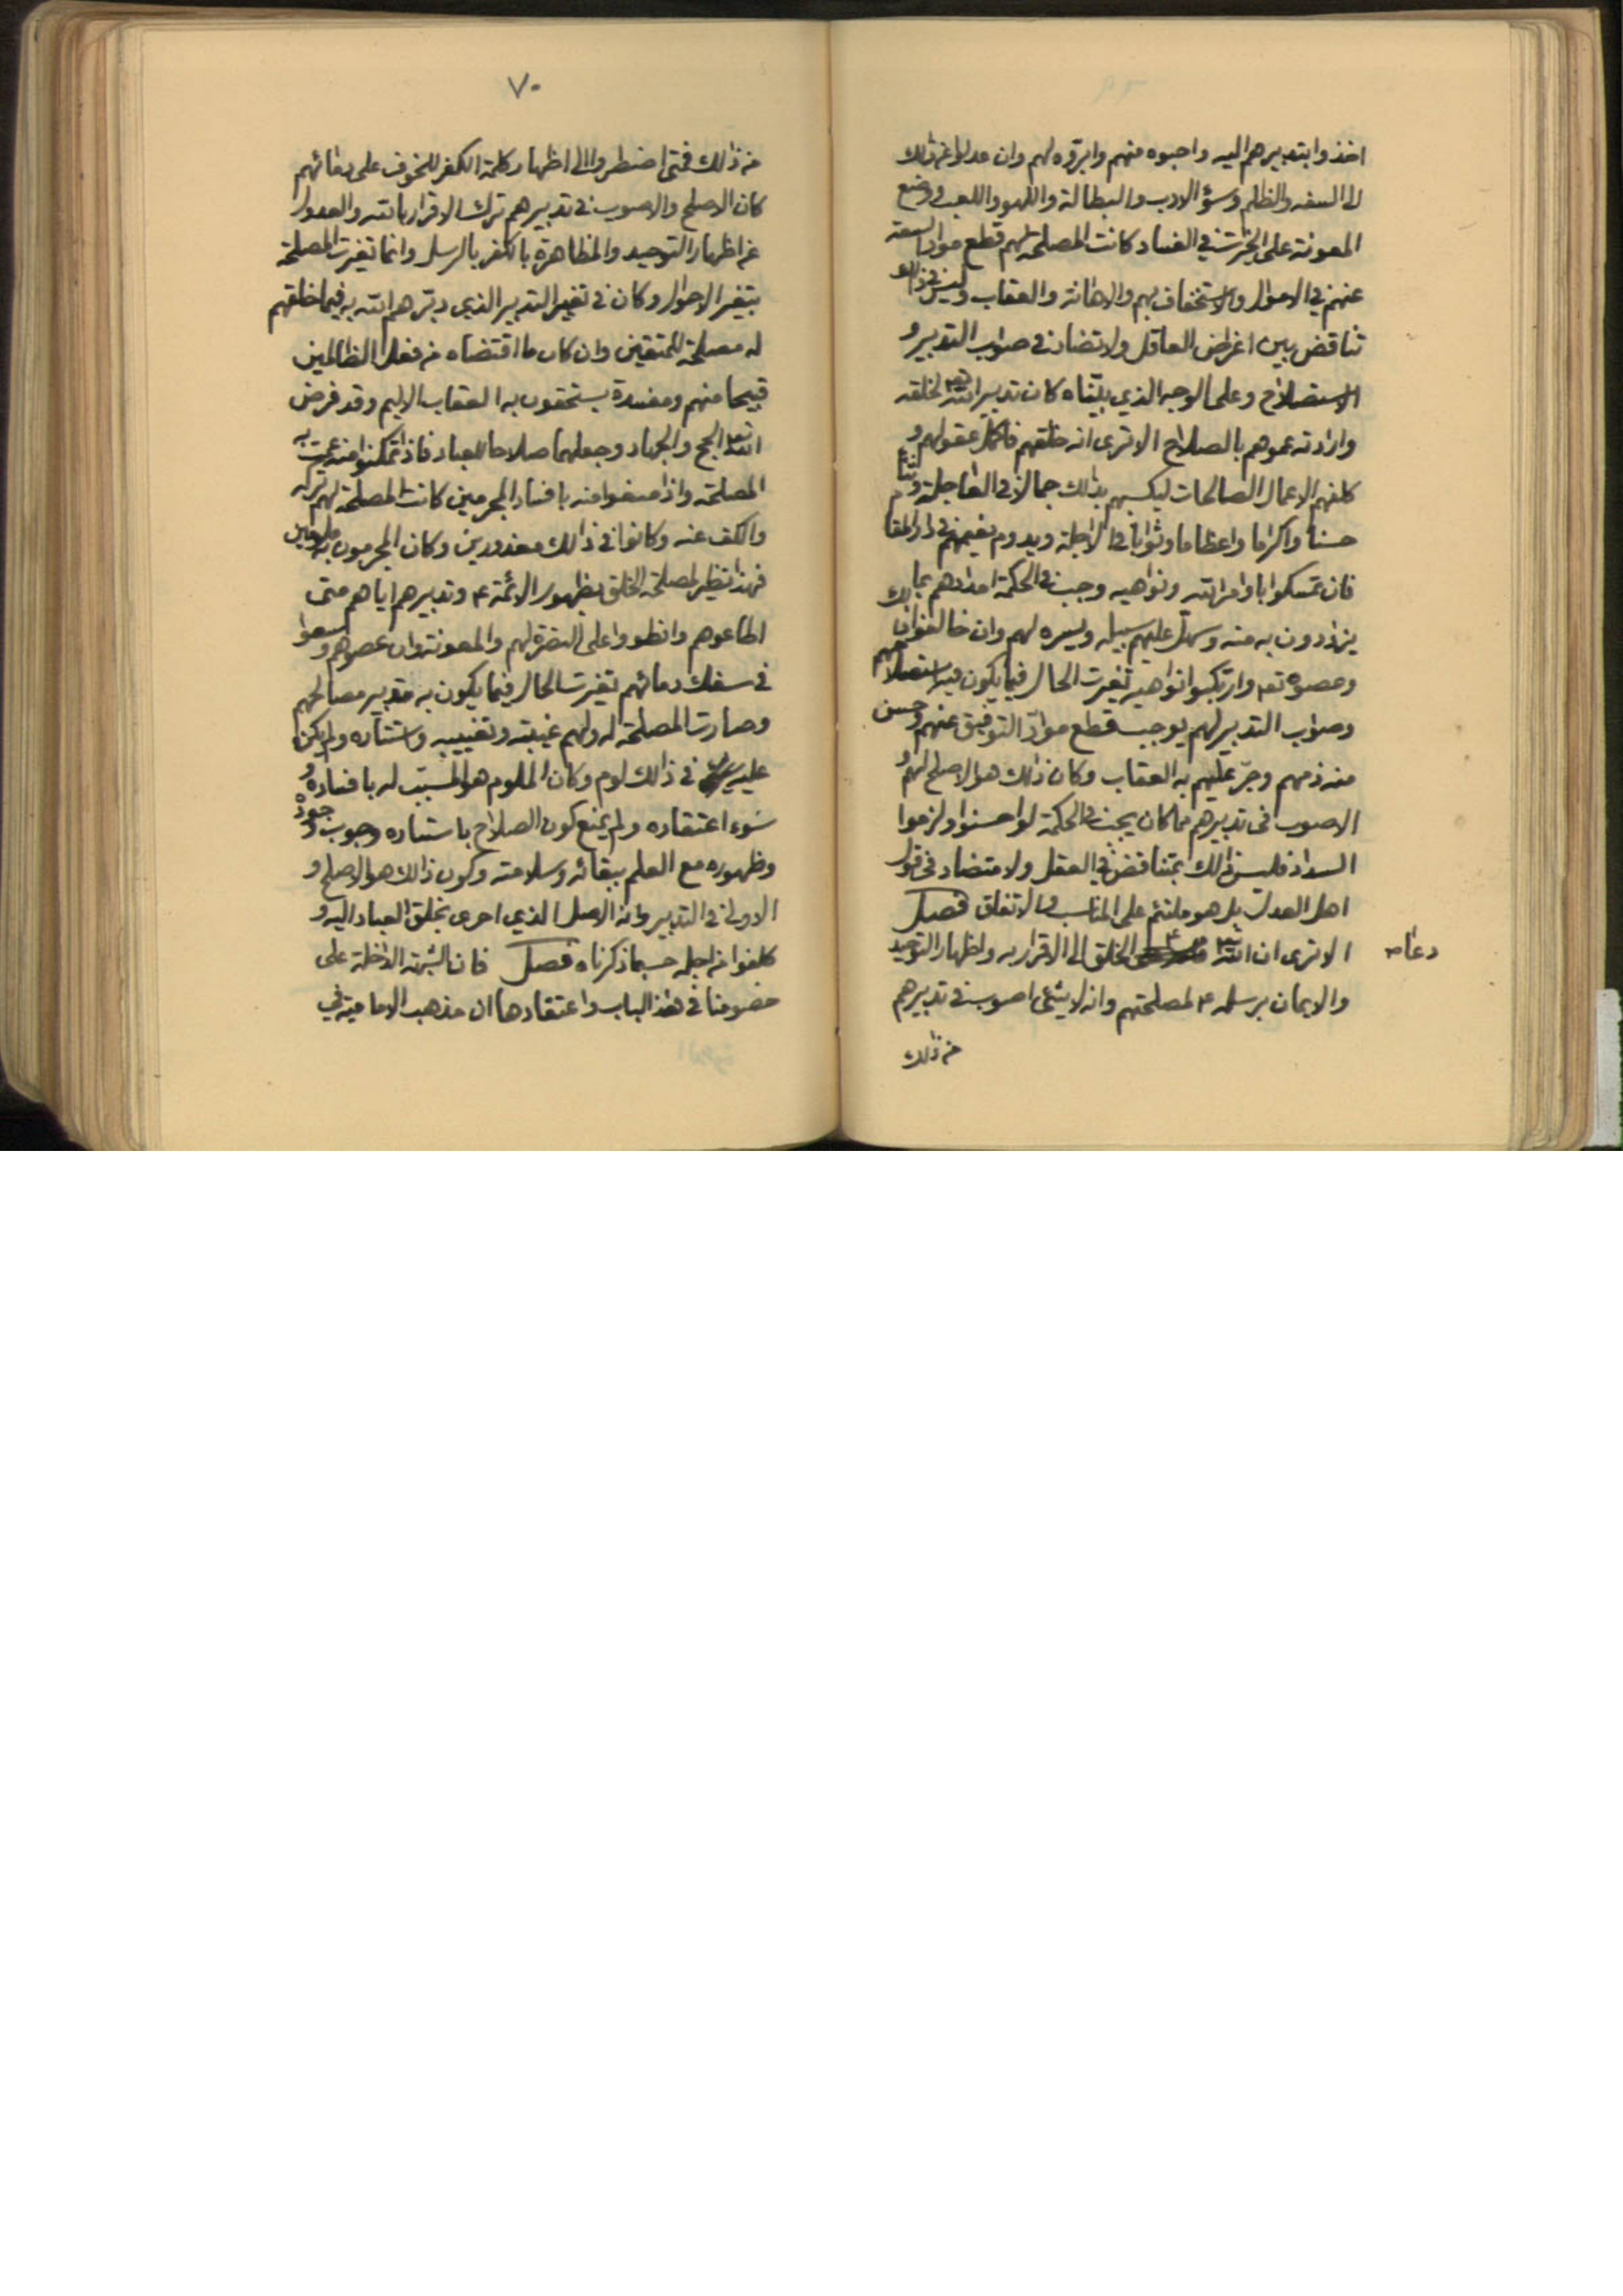 اخذوا بتدبيرهم اليه واحبوه منهم وابرّوه لهم وان عدلوا عن ذلك
الى السفه والظلم وسؤ الادب والبطالة واللهو واللعب ووضع
المعونة على الخيرات في الفساد كانت المصلحة لهم قطع مواد السعة
عنهم في الاموال والاستخفاف بهم والاهانة والعقاب وليس في ذلك
تناقض بين اغراض العاقل ولا تضاد في صواب التدبير و
الاستصلاح وعلى الوجه الذي بيّنّاه كان تدبير الله تعه لخلقه
وارادته عمومهم بالصلاح الا ترى انه خلقهم فاكمل عقولهم و
كلفهم الاعمال الصالحات ليكسبهم بذلك جمالا في العاجلة وثناء
حسنا واكراما واعظاما وثوابا في الاجلة ويدوم نعيمهم في دار المقا م
فان تمسكوا باوامر الله ونواهيه وجب في الحكمة امدادهم بما
يزدادون به منه وسهل عليهم سبيله ويسره لهم وان خالفوا ذلك
وعصوه تعه وارتكبوا نواهيه تغيرت الحال فيما يكون فيه استصلاحهم
وصواب التدبير لهم يوجب قطع موادّ التوفيق عنهم وحسن
منه ذمهم وجرّ عليهم به العقاب وكان ذلك هو الاصلح لهم و
الاصوب في تدبيرهم مما كان يجب في الحكمة لو احسنوا ولزموا
السداد فليس ذلك بمتناقض في العقل ولا متضاد في قول
اهل العدل بل هو ملتئم على المناسب والاتفاق فصل
الا ترى ان الله تعه الخلق الى الاقرار به واظهار التوحيد
دعا صه
والايمان برسله ع لمصلحتهم وانه لا شئ اصوب في تدبيرهم
من ذلك
٧٠
من ذلك فمتى اضطروا الى اظهار كلمة الكفر للخوف على دمائهم
كان الاصلح والاصوب في تدبيرهم ترك الاقرار بالله والعدول
عن اظهار التوحيد والمظاهرة بالكفر بالرسل وانما تغيرت المصلحة
بتغير الاحوال وكان في تغيير التدبير الذي دبرهم الله به فيما خلقهم
له مصلحة للمتقين وان كان ما اقتضاه من فعل الظالمين
قبيحا منهم ومفسدة يستحقون به العقاب الاليم وقد فرض
الله تعه الحج والجهاد وجعلهما صلاحا للعباد فاذا تمكنوا منه عمت به
المصلحة واذا منعوا منه بافساد المجرمين كانت المصلحة لهم تركه
والكف عنه وكانوا في ذلك معذورين وكان المجرمون به ملومين
فهذا نظير لمصلحة الخلق بظهور الائمة ع وتدبيرهم اياهم متى
اطاعوهم وانطووا على النصرة لهم والمعونة وان عصوهم وسعوا
في سفك دمائهم تغيرت الحال فيما يكون به تدبير مصالحهم
وصارت المصلحة له ولهم غيبته وتغييبه واستتاره ولم يكن
عليه في ذلك لوم وكان الملوم هو المسبّب له بافساده و
سوء اعتقاده ولم يمنع كون الصلاح باستتاره وجوب وجوده
وظهوره مع العلم ببقائه وسلامته وكون ذلك هو الاصلح و
الاولى في التدبير وانه الاصل الذي اجرى بخلق العباد اليه و
كلفوا من اجله حسبما ذكرناه فصل فان الشبهة الداخلة على
خصومنا في هذا الباب واعتقادها ان مذهب الامامية في